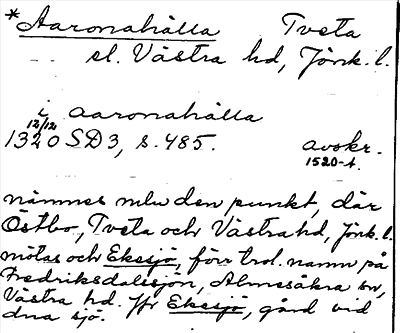 *Aaronahälla Tveta
el. Västra hd, Jönk. l.
i aaronahälla
12/12
1320 SD3, s. 485. avskr.
1520-t.
nämnes mlm den punkt, där
Östbo, Tveta och Västra hd, Jönk. l.
mötas och Ekesjö, förr trol. namn på
Fredriksdalssjön, Almesåkra sn,
Västra hd. Jfr Ekesjö, gård vid
dna sjö.